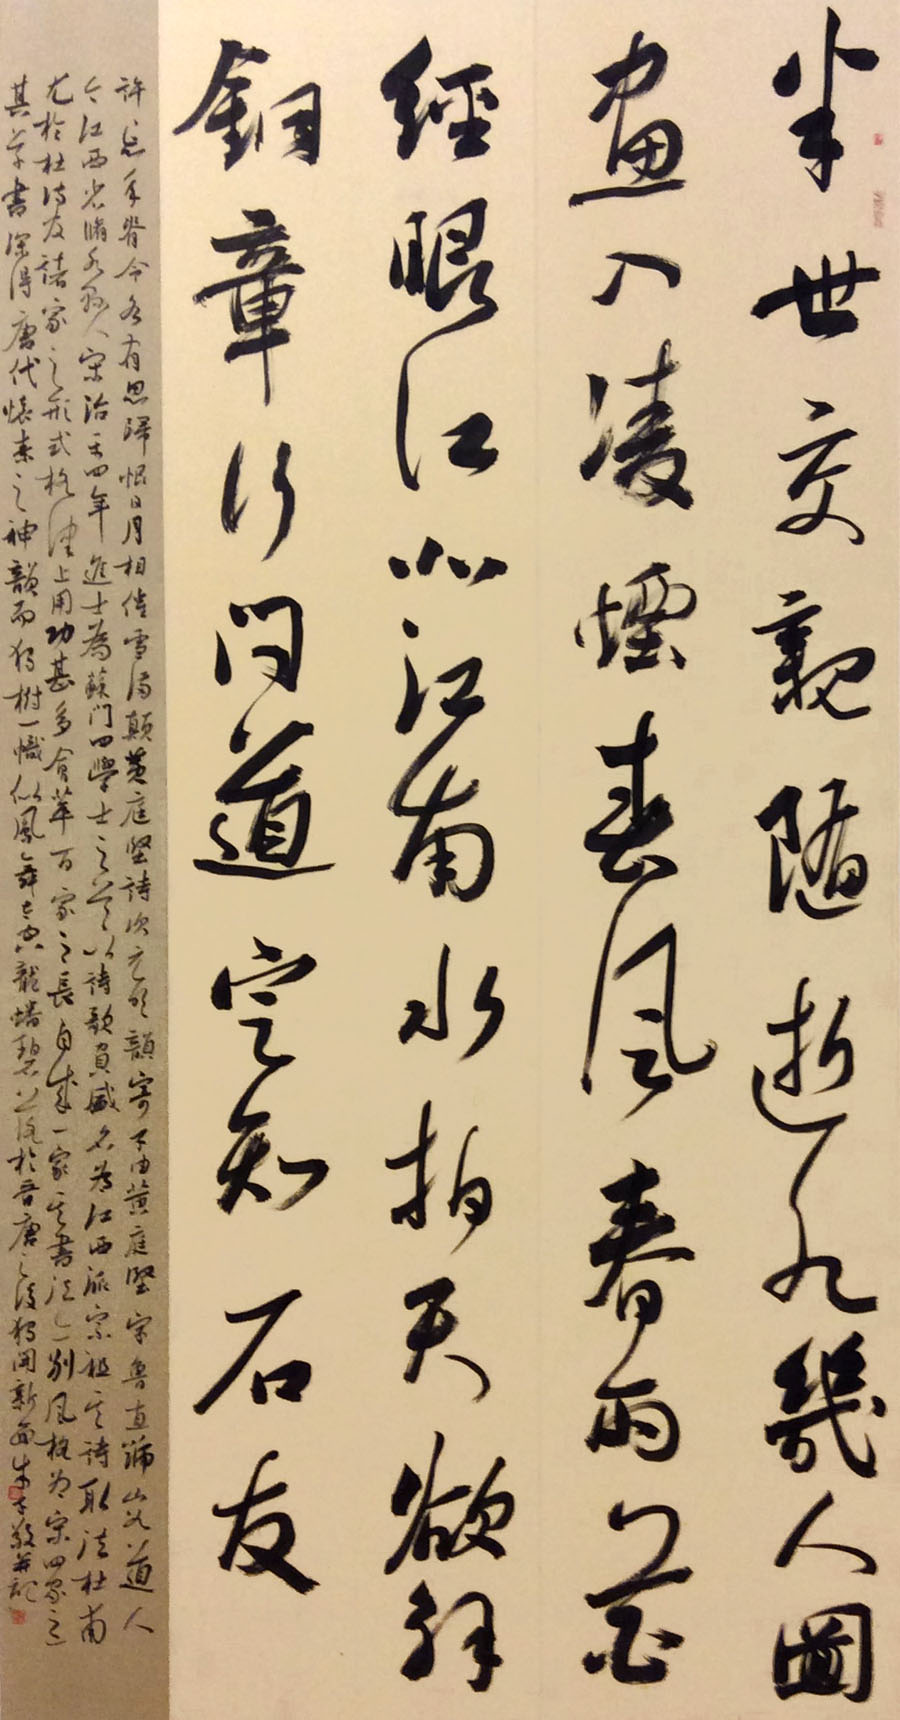 半世交親隨逝水幾人圖
畫入凌煙春風春雨花
經眼江北江南水拍天欲解
銅章行問道定知石友
許忘年脊令各有思歸恨日月相催雪滿顛黃庭堅詩次元明韻寄子由黃庭堅字魯直號山谷道人
江西省修水縣人宋治平四年進士為蘇门四學士之首以詩歌負盛名為江西派宗祖其詩取法杜甫
尤於杜詩友諸家之形式格律上用功甚多會萃百家之長自成一家其書法亦別風格为宋四家之
其草書深得唐代懷素之神韻而獨樹一幟似鳳舞 龍蟠碧 於晋唐之後独開新面 敬並記